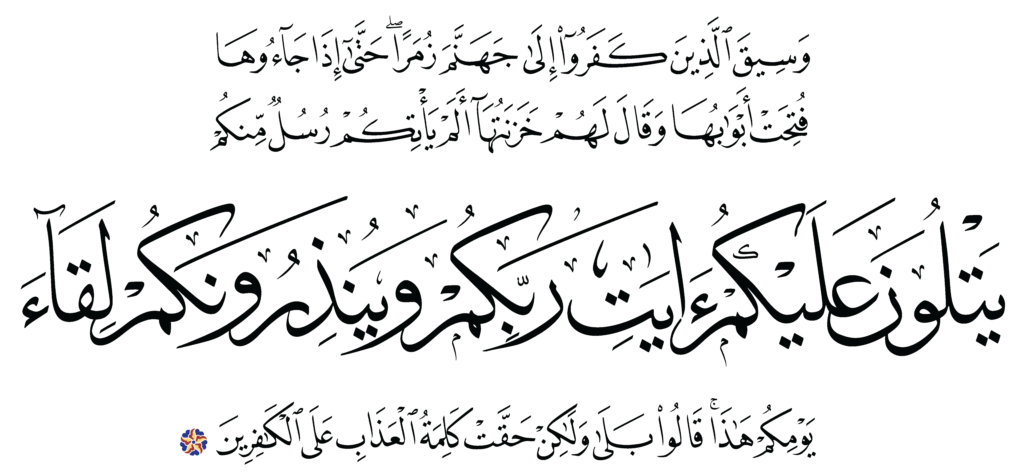 وَسِيقَ ٱلَّذِينَ كَفَرُوٓا۟ إِلَىٰ جَهَنَّمَ زُمَرًا ۖ حَتَّىٰٓ إِذَا جَآءُوهَا
فُتِحَتْ أَبْوَٰبُهَا وَقَالَ لَهُمْ خَزَنَتُهَآ أَلَمْ يَأْتِكُمْ رُسُلٌ مِّنكُمْ
يَتْلُونَ عَلَيْكُمْ ءَايَٰتِ رَبِّكُمْ وَيُنذِرُونَكُمْ لِقَآءَ
يَوْمِكُمْ هَٰذَا ۚ قَالُوا۟ بَلَىٰ وَلَٰكِنْ حَقَّتْ كَلِمَةُ ٱلْعَذَابِ عَلَى ٱلْكَٰفِرِينَ